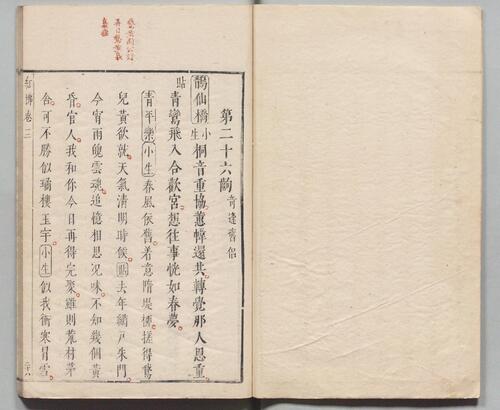 第二十六齣 奇逢舊侶
鵲仙橋小生桐音重協蕙幃還共轉覺那人恩重
貼青鸞飛入合歡宮想往事恍如春夢
青平樂小生春風依舊着意隋堤搓得鵞
兒黃欲就天氣清明時候貼去年繡戶朱門
今宵雨魄雲魂追憶相思況味不知幾個黃
昏官人我和你今日再得完聚雖則荒村茅
舍可不勝似瑤樓玉宇小生似我衝寒冒雪
紅拂卷三
二十八